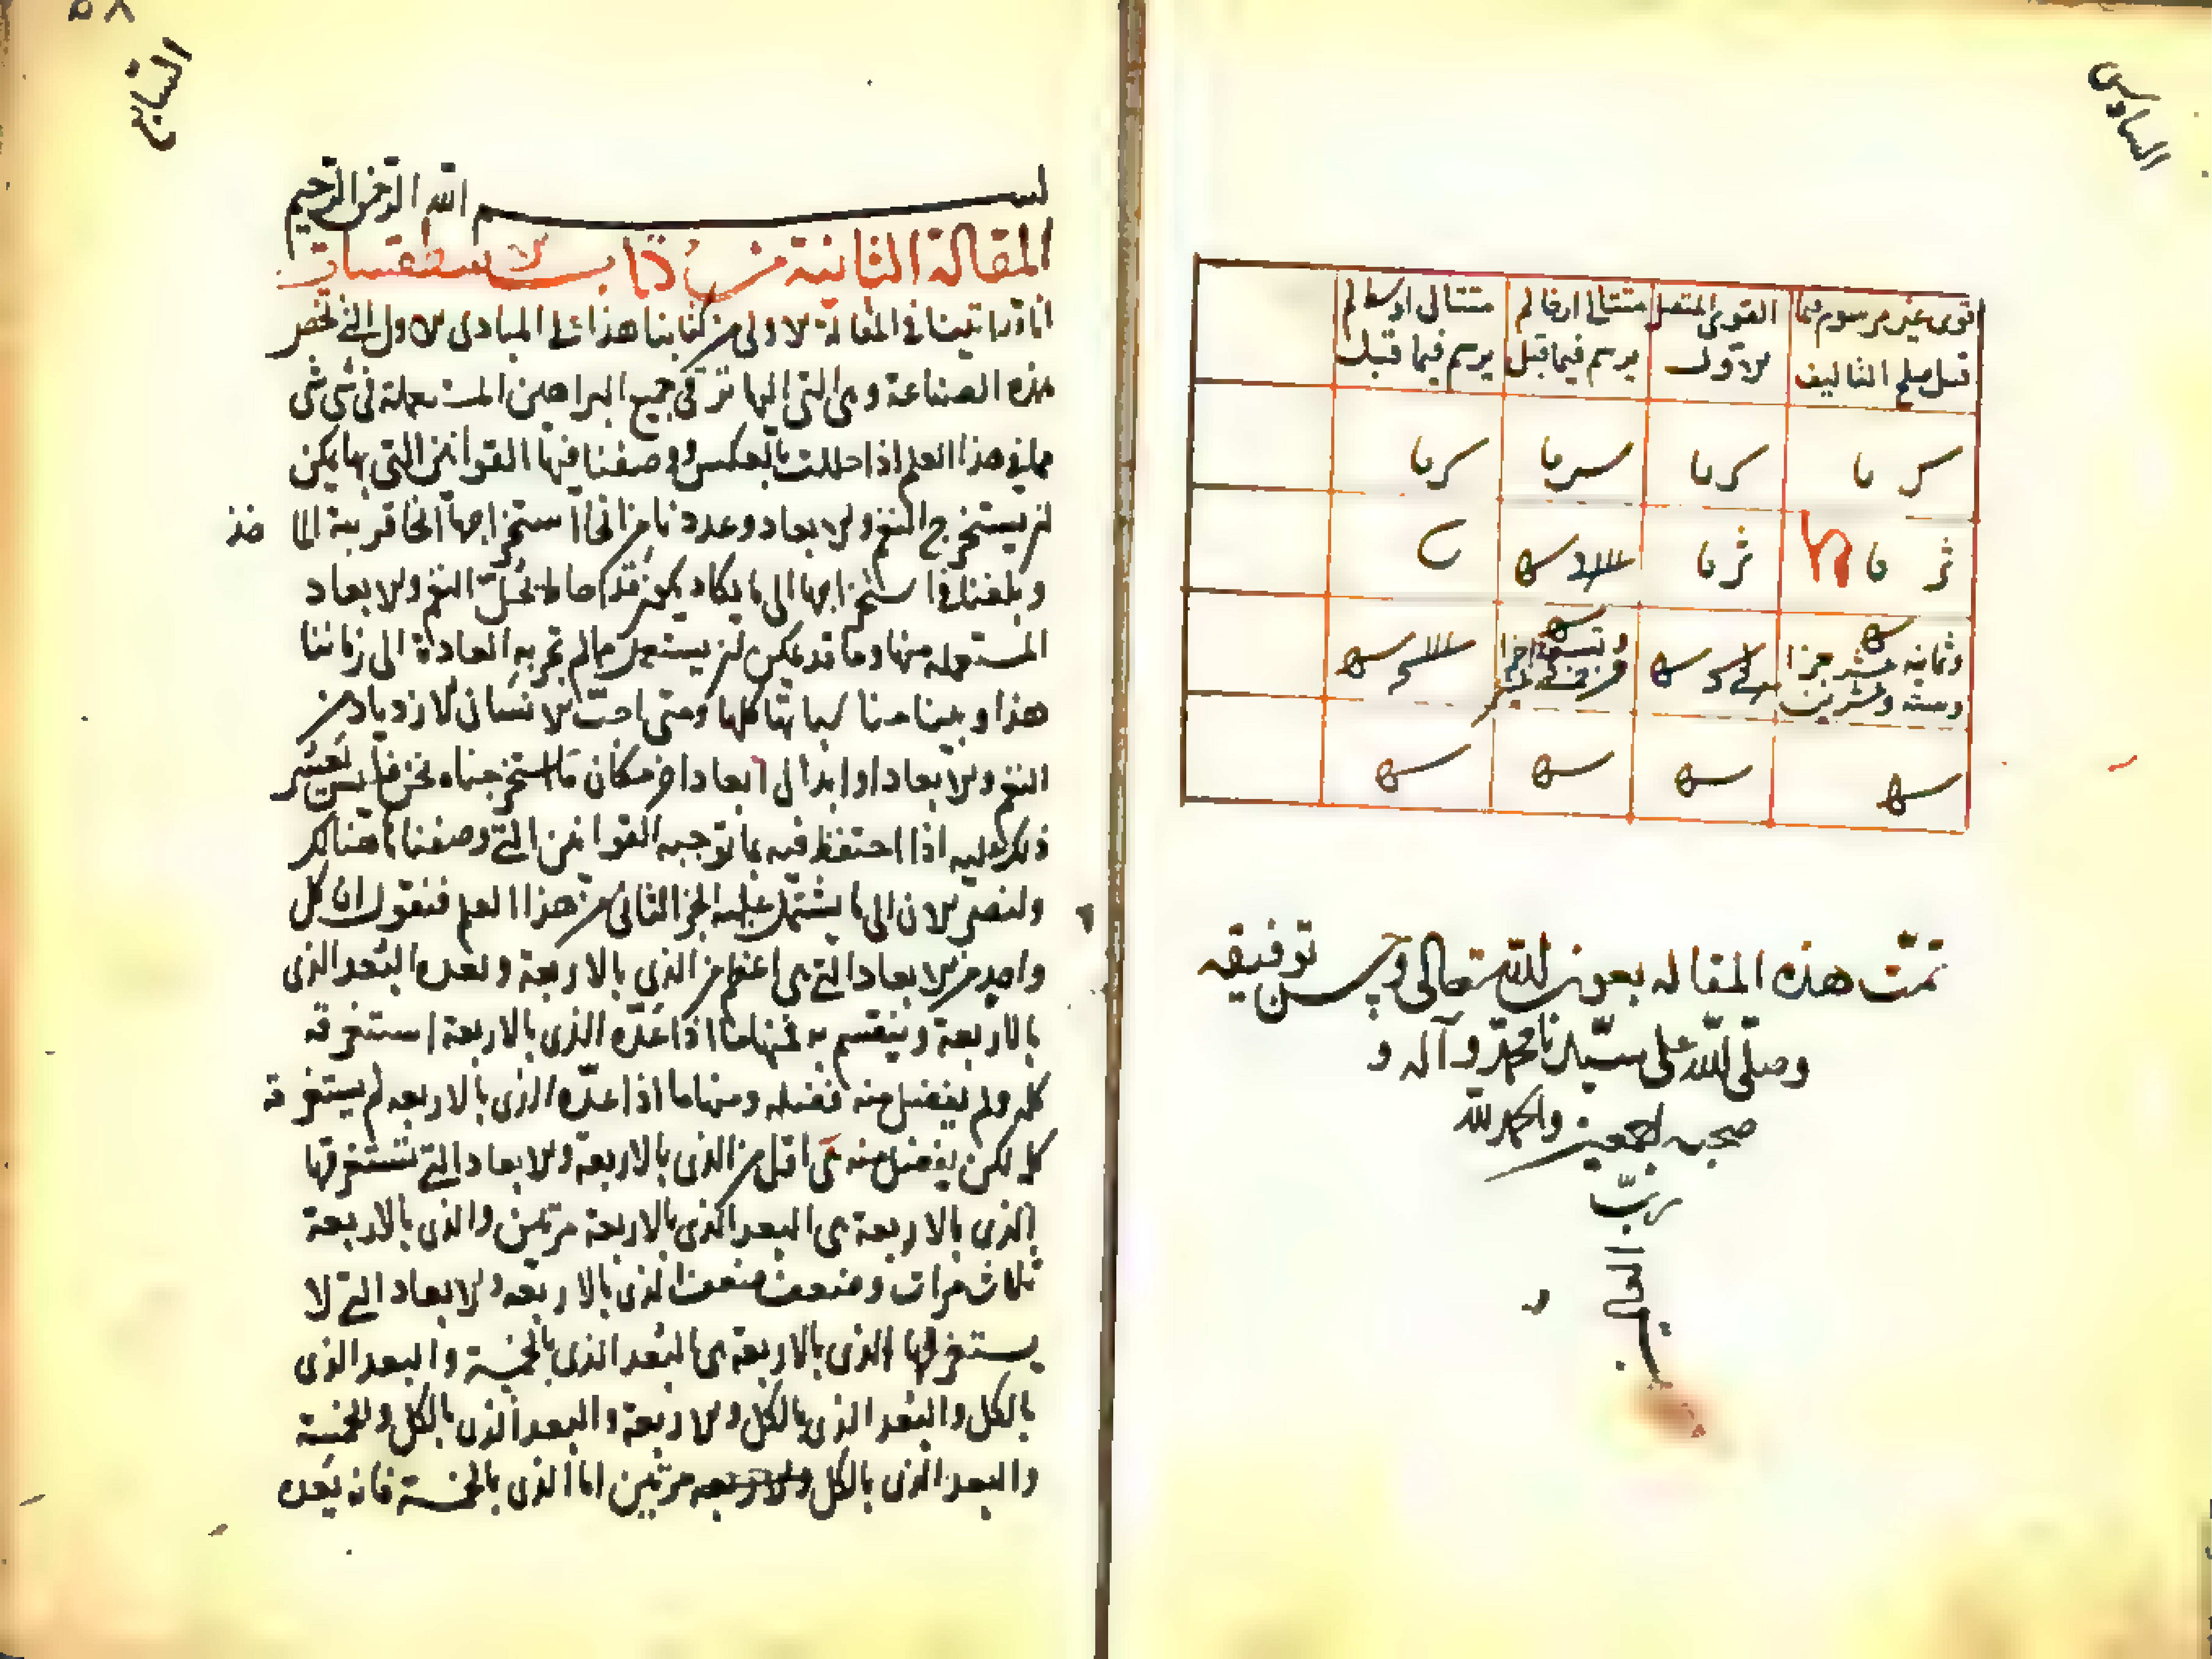 السادس
اقوى غير مرسوم فيما قبل صلح التاليف
القوى المتصل الاول
متتالى ارخا لم يرسم فيما قبل
متتالى اوسط لم يرسم فيما قبل
تمّت هذه المقاله بعون الله تعالى وحسن توفيقه
وصلّى الله على سيّدنا محمّد وآله و
صحبه اجمعين والحمد لله
ربّ
العالمين
٥٨
السابع
بسم الله الرحمن الرحيم
المقالة الثانية من كتاب الاسطقسات
انا قد اتينا فى المقالة الاولى من كتابنا هذا على المبادى الاول التى تخص
هذه الصناعة وهى التى اليها ترقى جميع البراهين المستعملة فى شى شى
مما فى هذا العلم اذا حللت بالعكس ووصفنا فيها القوانين التى بها يمكن
ان يستخرج النغم والابعاد وعددنا من انحا استخراجها انحا قريبة الماخذ
وبلغنا فى استخراجها الى ما يكاد يكون قد احاط بجلّ النغم والابعاد
المستعمله منها وما قد يمكن ان يستعمل مما لم تجر به العادة الى زماننا
هذا وبينا مناسباتها كلها ومتى احبّ الانسان الازدياد من
النغم والابعاد او ابدال ابعاد اخر مكان ما استخرجناه نحن فليس يعسر
ذلك عليه اذا احتفظ فيه بما توجبه القوانين التى وصفناها هنالك
ولنصر الان الى ما يشتمل عليه الجز الثانى من هذا العلم فنقول ان كل
واحد من الابعاد التى هى اعظم من الذى بالاربعة وبعده البعد الذى
بالاربعة وينقسم به فمنها ما اذا عدّه الذى بالاربعة استغرقه
كله ولم يفضل منه فضله ومنها ما اذا عدّه الذى بالاربعه لم يستغرقه
كله لكن يفضل منه شى اقل من الذى بالاربعة والابعاد التى تستغرقها
الذى بالاربعة هى البعد الذى بالاربعة مرتين والذى بالاربعة
ثلاث مرات وضعف ضعف الذى بالاربعه والابعاد التى لا
يستغرقها الذى بالاربعة هى البعد الذى بالخمسة والبعد الذى
بالكل والبعد الذى بالكل والاربعة والبعد الذى بالكل والخمسة
والبعد الذى بالكل مرتين اما الذى بالخمسة فانه يعده